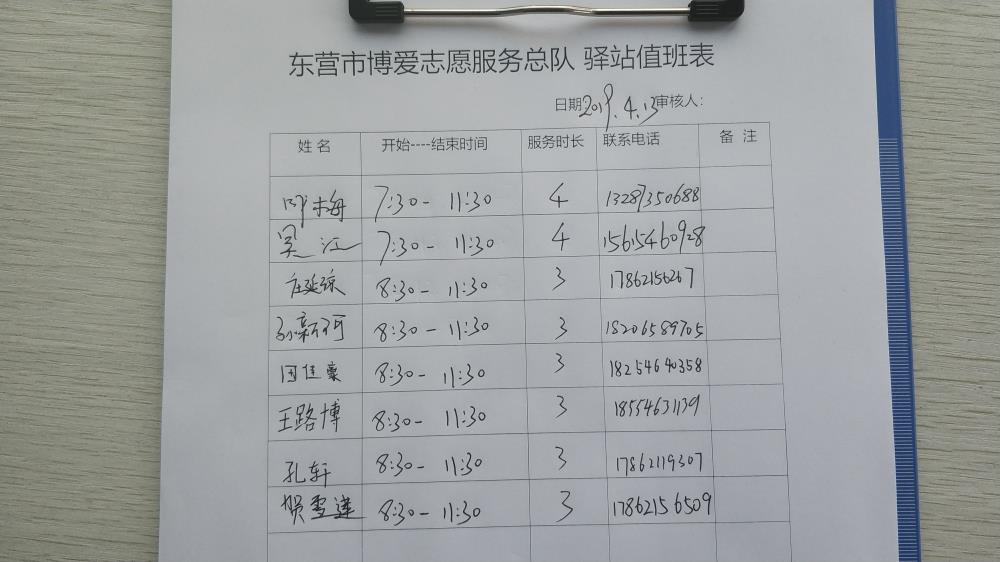 东营市博爱志愿服务总队 驿站值班表
日期2019.4.13审核人：
姓名 开始----结束时间 服务时长 联系电话 备 注
叶梅 7:30- 11:30 4 13287350688
吴江 7:30- 11:30 4 15615460928
庄延琼 8:30- 11:30 3 17862156267
孙新河 8:30- 11:30 3 18206589705
国佳豪 8:30- 11:30 3 18254640358
王路博 8:30- 11:30 3 18554631139
孔轩 8:30- 11:30 3 17862119307
8:30- 11:30 3 17862156509